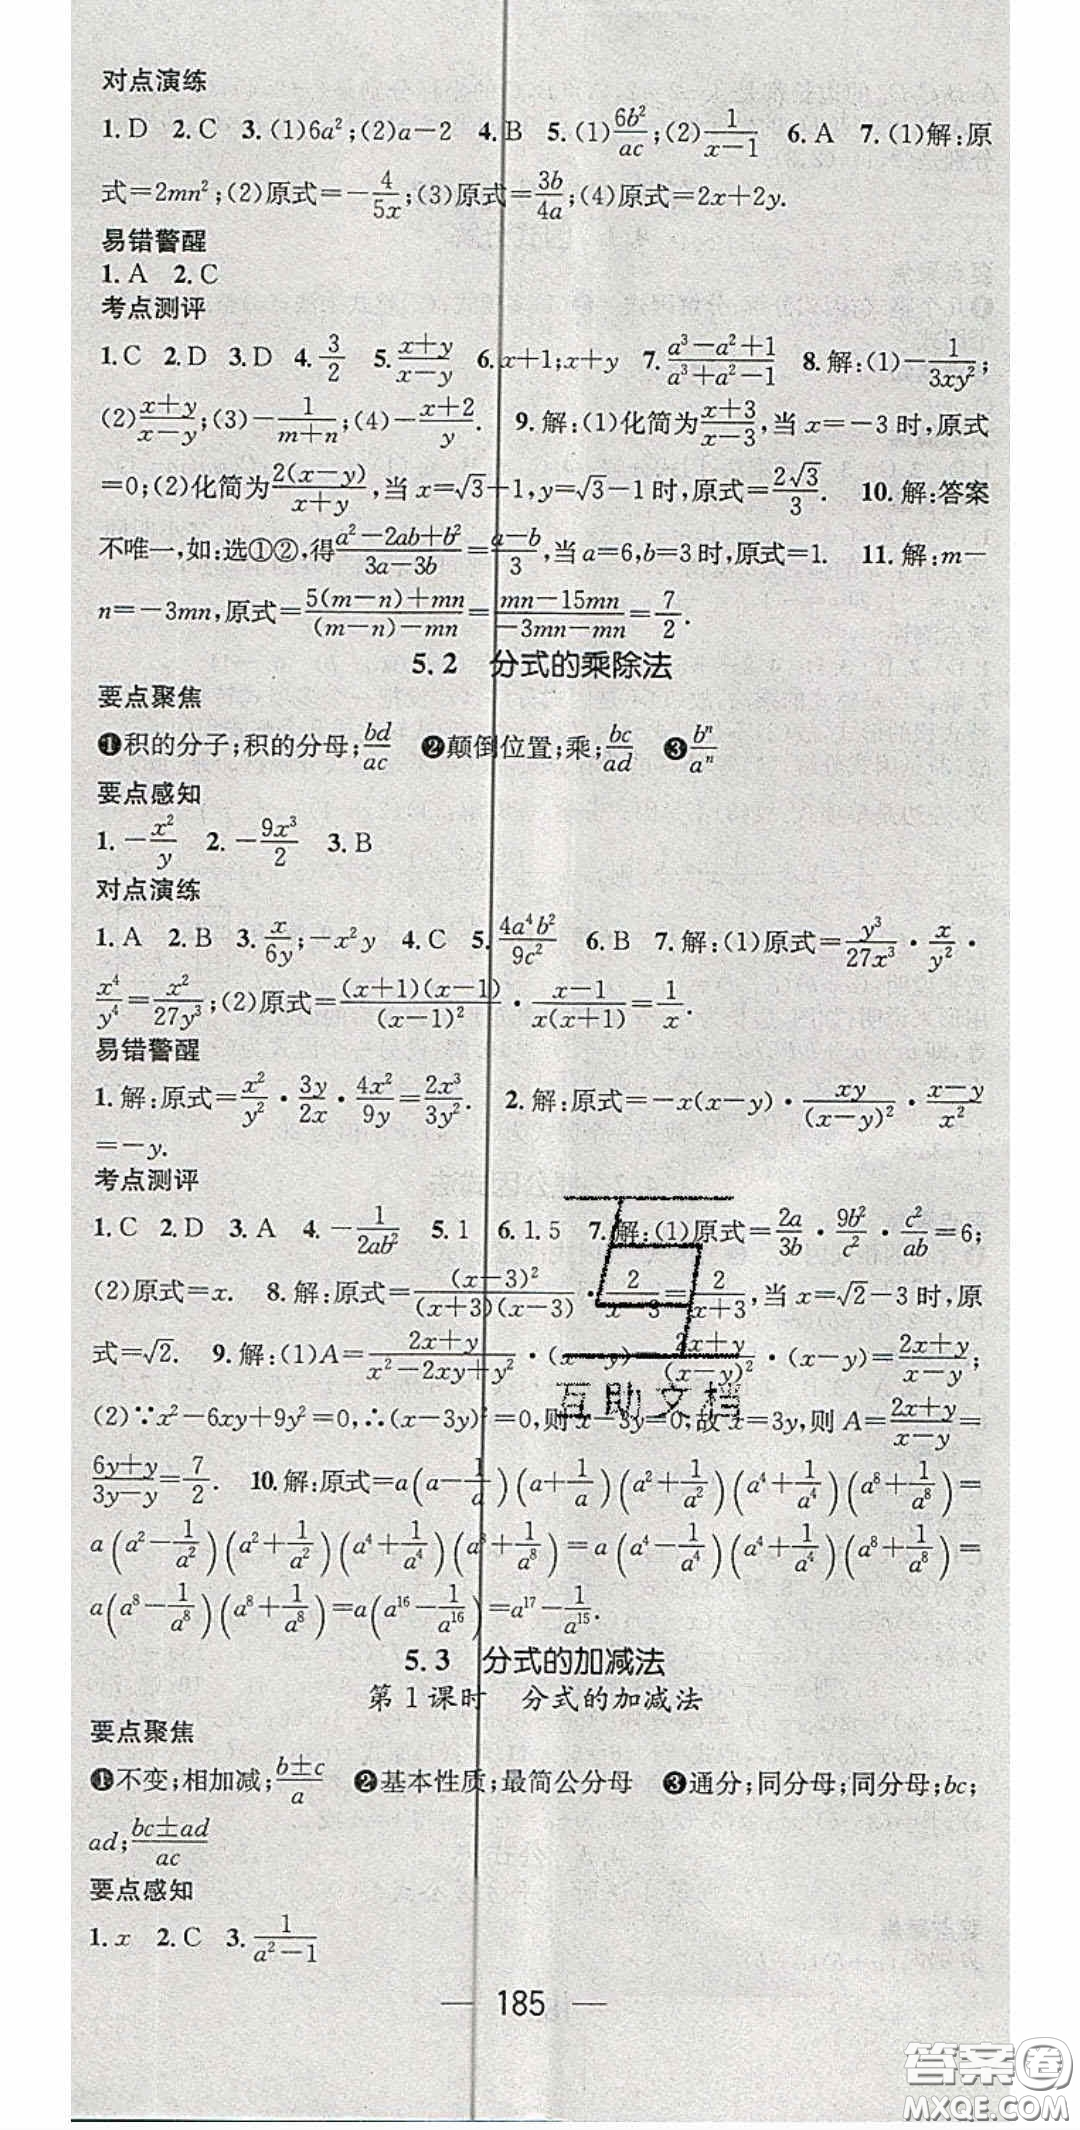 对点演练
1. D 2. C 3. (1)6a²;(2)a－2 4. B 5. (1)6b²/ac;(2)1/(x－1) 6. A 7. (1)解:原
式＝2mn²;(2)原式＝－4/5x;(3)原式＝3b/4a;(4)原式＝2x＋2y.
易错警醒
1. A 2. C
考点测评
1. C 2. D 3. D 4. 3/2 5. (x＋y)/(x－y) 6. x＋1;x＋y 7. (a³－a²＋1)/(a³＋a²－1) 8. 解:(1)－1/3xy²;
(2)(x＋y)/(x－y);(3)－1/(m＋n);(4)－(x＋2)/y. 9. 解:(1)化简为(x＋3)/(x－3),当 x＝－3 时,原式
＝0;(2)化简为2(x－y)/(x＋y),当 x＝√3＋1,y＝√3－1 时,原式＝2√3/3. 10. 解:答案
不唯一,如:选①②,得(a²－2ab＋b²)/(3a－3b)＝(a－b)/3,当 a＝6,b＝3 时,原式＝1. 11. 解:m－
n＝－3mn,原式＝(5(m－n)＋mn)/((m－n)－mn)＝(mn－15mn)/(－3mn－mn)＝7/2.
5.2 分式的乘除法
要点聚焦
❶积的分子;积的分母;bd/ac ❷颠倒位置;乘;bc/ad ❸bⁿ/aⁿ
要点感知
1. －x²/y 2. －9x³/2 3. B
对点演练
1. A 2. B 3. x/6y;－x²y 4. C 5. 4a⁴b²/9c² 6. B 7. 解:(1)原式＝y³/27x³·x/y²·
x⁴/y⁴＝x²/27y³;(2)原式＝(x＋1)(x－1)/(x－1)²·(x－1)/x(x＋1)＝1/x.
易错警醒
1. 解:原式＝x²/y²·3y/2x·4x²/9y＝2x³/3y². 2. 解:原式＝－x(x－y)·xy/(x－y)²·(x－y)/x²
＝－y.
考点测评
1. C 2. D 3. A 4. －1/2ab² 5. 1 6. 1.5 7. 解:(1)原式＝2a/3b·9b²/c²·c²/ab＝6;
(2)原式＝x. 8. 解:原式＝(x－3)²/(x＋3)(x－3)·2/(x－3)＝2/(x＋3),当 x＝√2－3 时,原
式＝√2. 9. 解:(1)A＝(2x＋y)/(x²－2xy＋y²)·(x－y)＝(2x＋y)/(x－y)²·(x－y)＝(2x＋y)/(x－y);
(2)∵x²－6xy＋9y²＝0,∴(x－3y)²＝0,则 x－3y＝0,故 x＝3y,则 A＝(2x＋y)/(x－y)＝
(6y＋y)/(3y－y)＝7/2. 10. 解:原式＝a(a－1/a)(a＋1/a)(a²＋1/a²)(a⁴＋1/a⁴)(a⁸＋1/a⁸)＝
a(a²－1/a²)(a²＋1/a²)(a⁴＋1/a⁴)(a⁸＋1/a⁸)＝a(a⁴－1/a⁴)(a⁴＋1/a⁴)(a⁸＋1/a⁸)＝
a(a⁸－1/a⁸)(a⁸＋1/a⁸)＝a(a¹⁶－1/a¹⁶)＝a¹⁷－1/a¹⁵.
5.3 分式的加减法
第 1 课时 分式的加减法
要点聚焦
❶不变;相加减;(b±c)/a ❷基本性质;最简公分母 ❸通分;同分母;同分母;bc;
ad;(bc±ad)/ac
要点感知
1. x 2. C 3. 1/(a²－1)
— 185 —
互助文档
答案圈
MXQE.COM